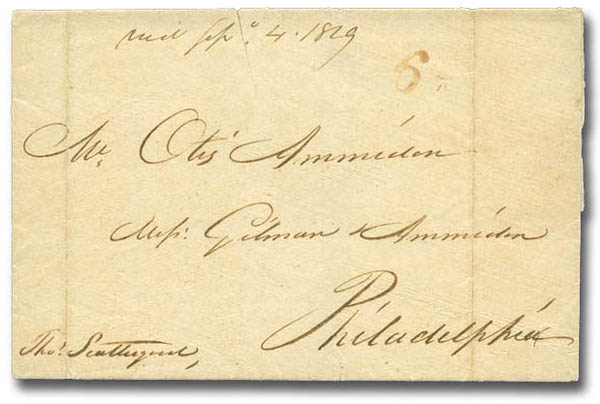 recd Sepr. 4. 1829
6
Mr. Otis Ammidon
Messrs. Gilman & Ammidon
Philadelphia
Thos. Scattergood,